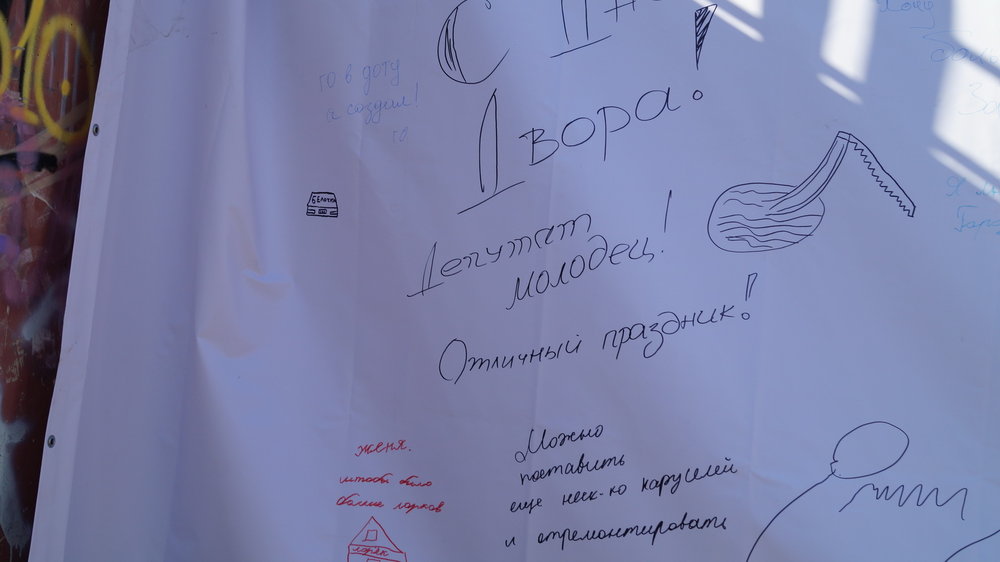 С Дн
Двора!
го в доту
а создуем!
го
БЕЛОЧКА
Депутат
молодец!
Отличный праздник!
Женя.
штобы было
больше ларков
ларёк
Можно
поставить
еще неск-ко каруселей
и отремонтировать
Хочу
Я